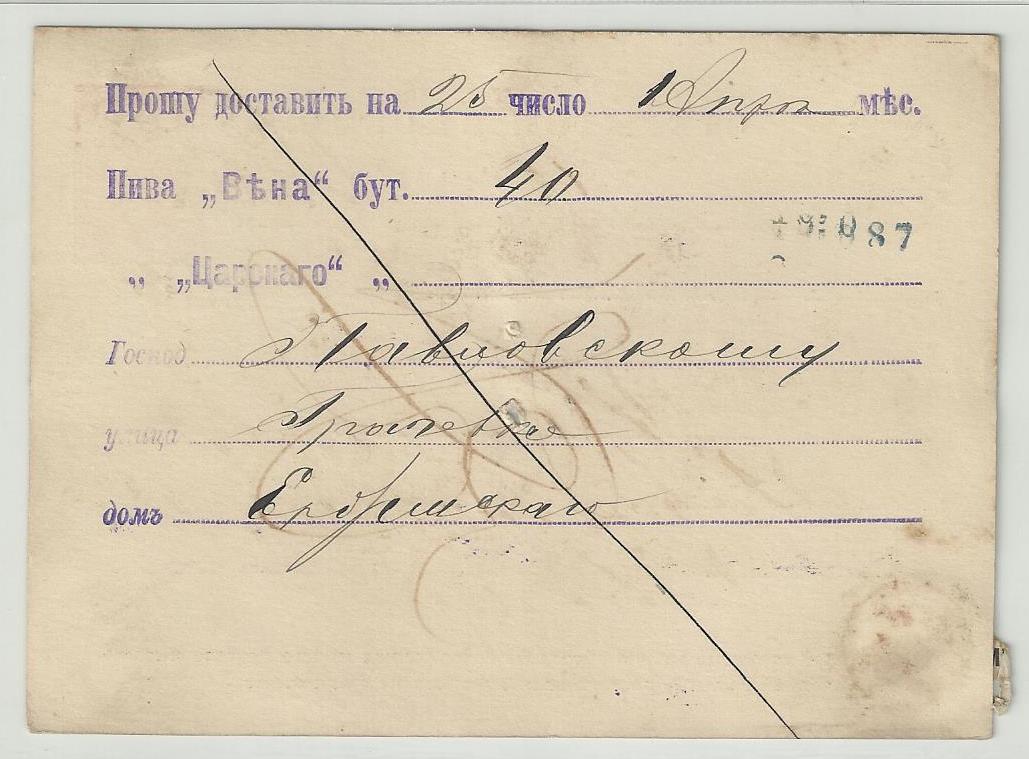 Прошу доставить на 25 число Апрѣл мѣс.
Пива „Вѣна“ бут. 40
87
„ „Царскаго“ „
Господ Павловскому
улица Грачевка
домъ